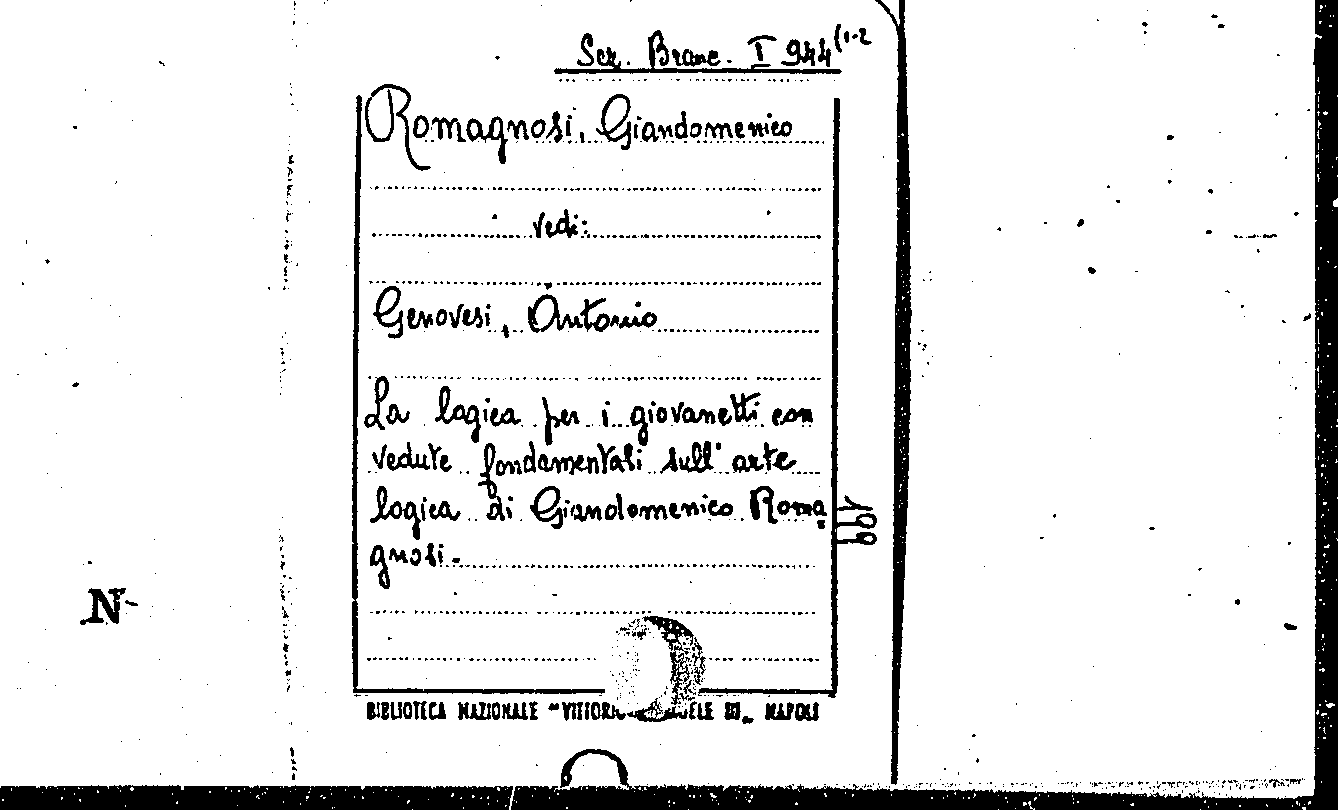 Sez. Branc. I 944(1-2
Romagnosi, Giandomenico
vedi:
Genovesi, Antonio
La logica per i giovanetti con
vedute fondamentali sull'arte
logica di Giandomenico Roma
gnosi.
N
BIBLIOTECA NAZIONALE "VITTORIO EMANUELE III„ NAPOLI